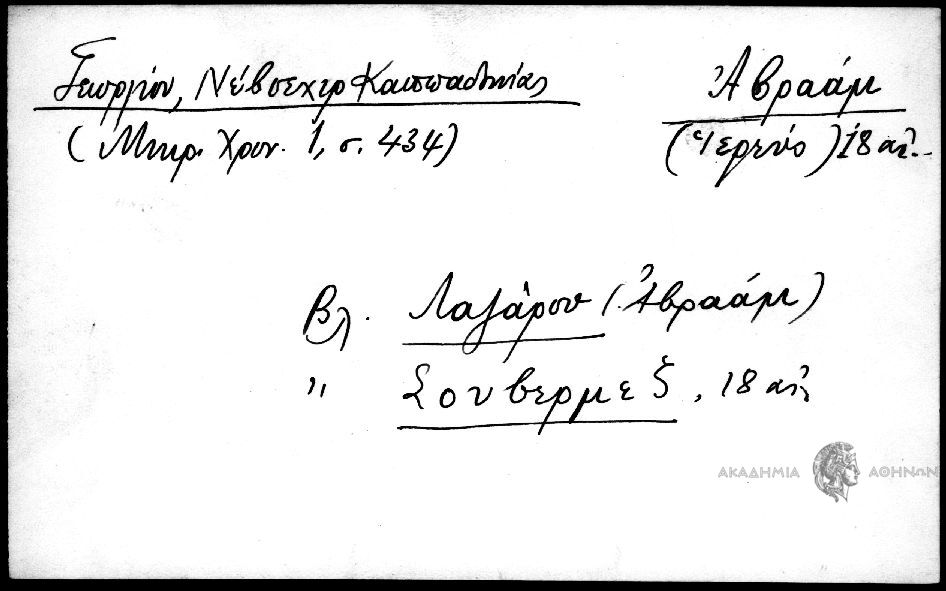 Γεωργίου, Νέβσεχιρ Καππαδοκίας
Ἀβραάμ
(Μικρ. Χρον. 1, σ. 434)
(Ἱερεύς) 18 αἰ.
Βλ. Λαζάρου (Ἀβραάμ)
" Σουβερμεζ, 18 αἰ.
ΑΚΑΔΗΜΙΑ ΑΘΗΝΩΝ